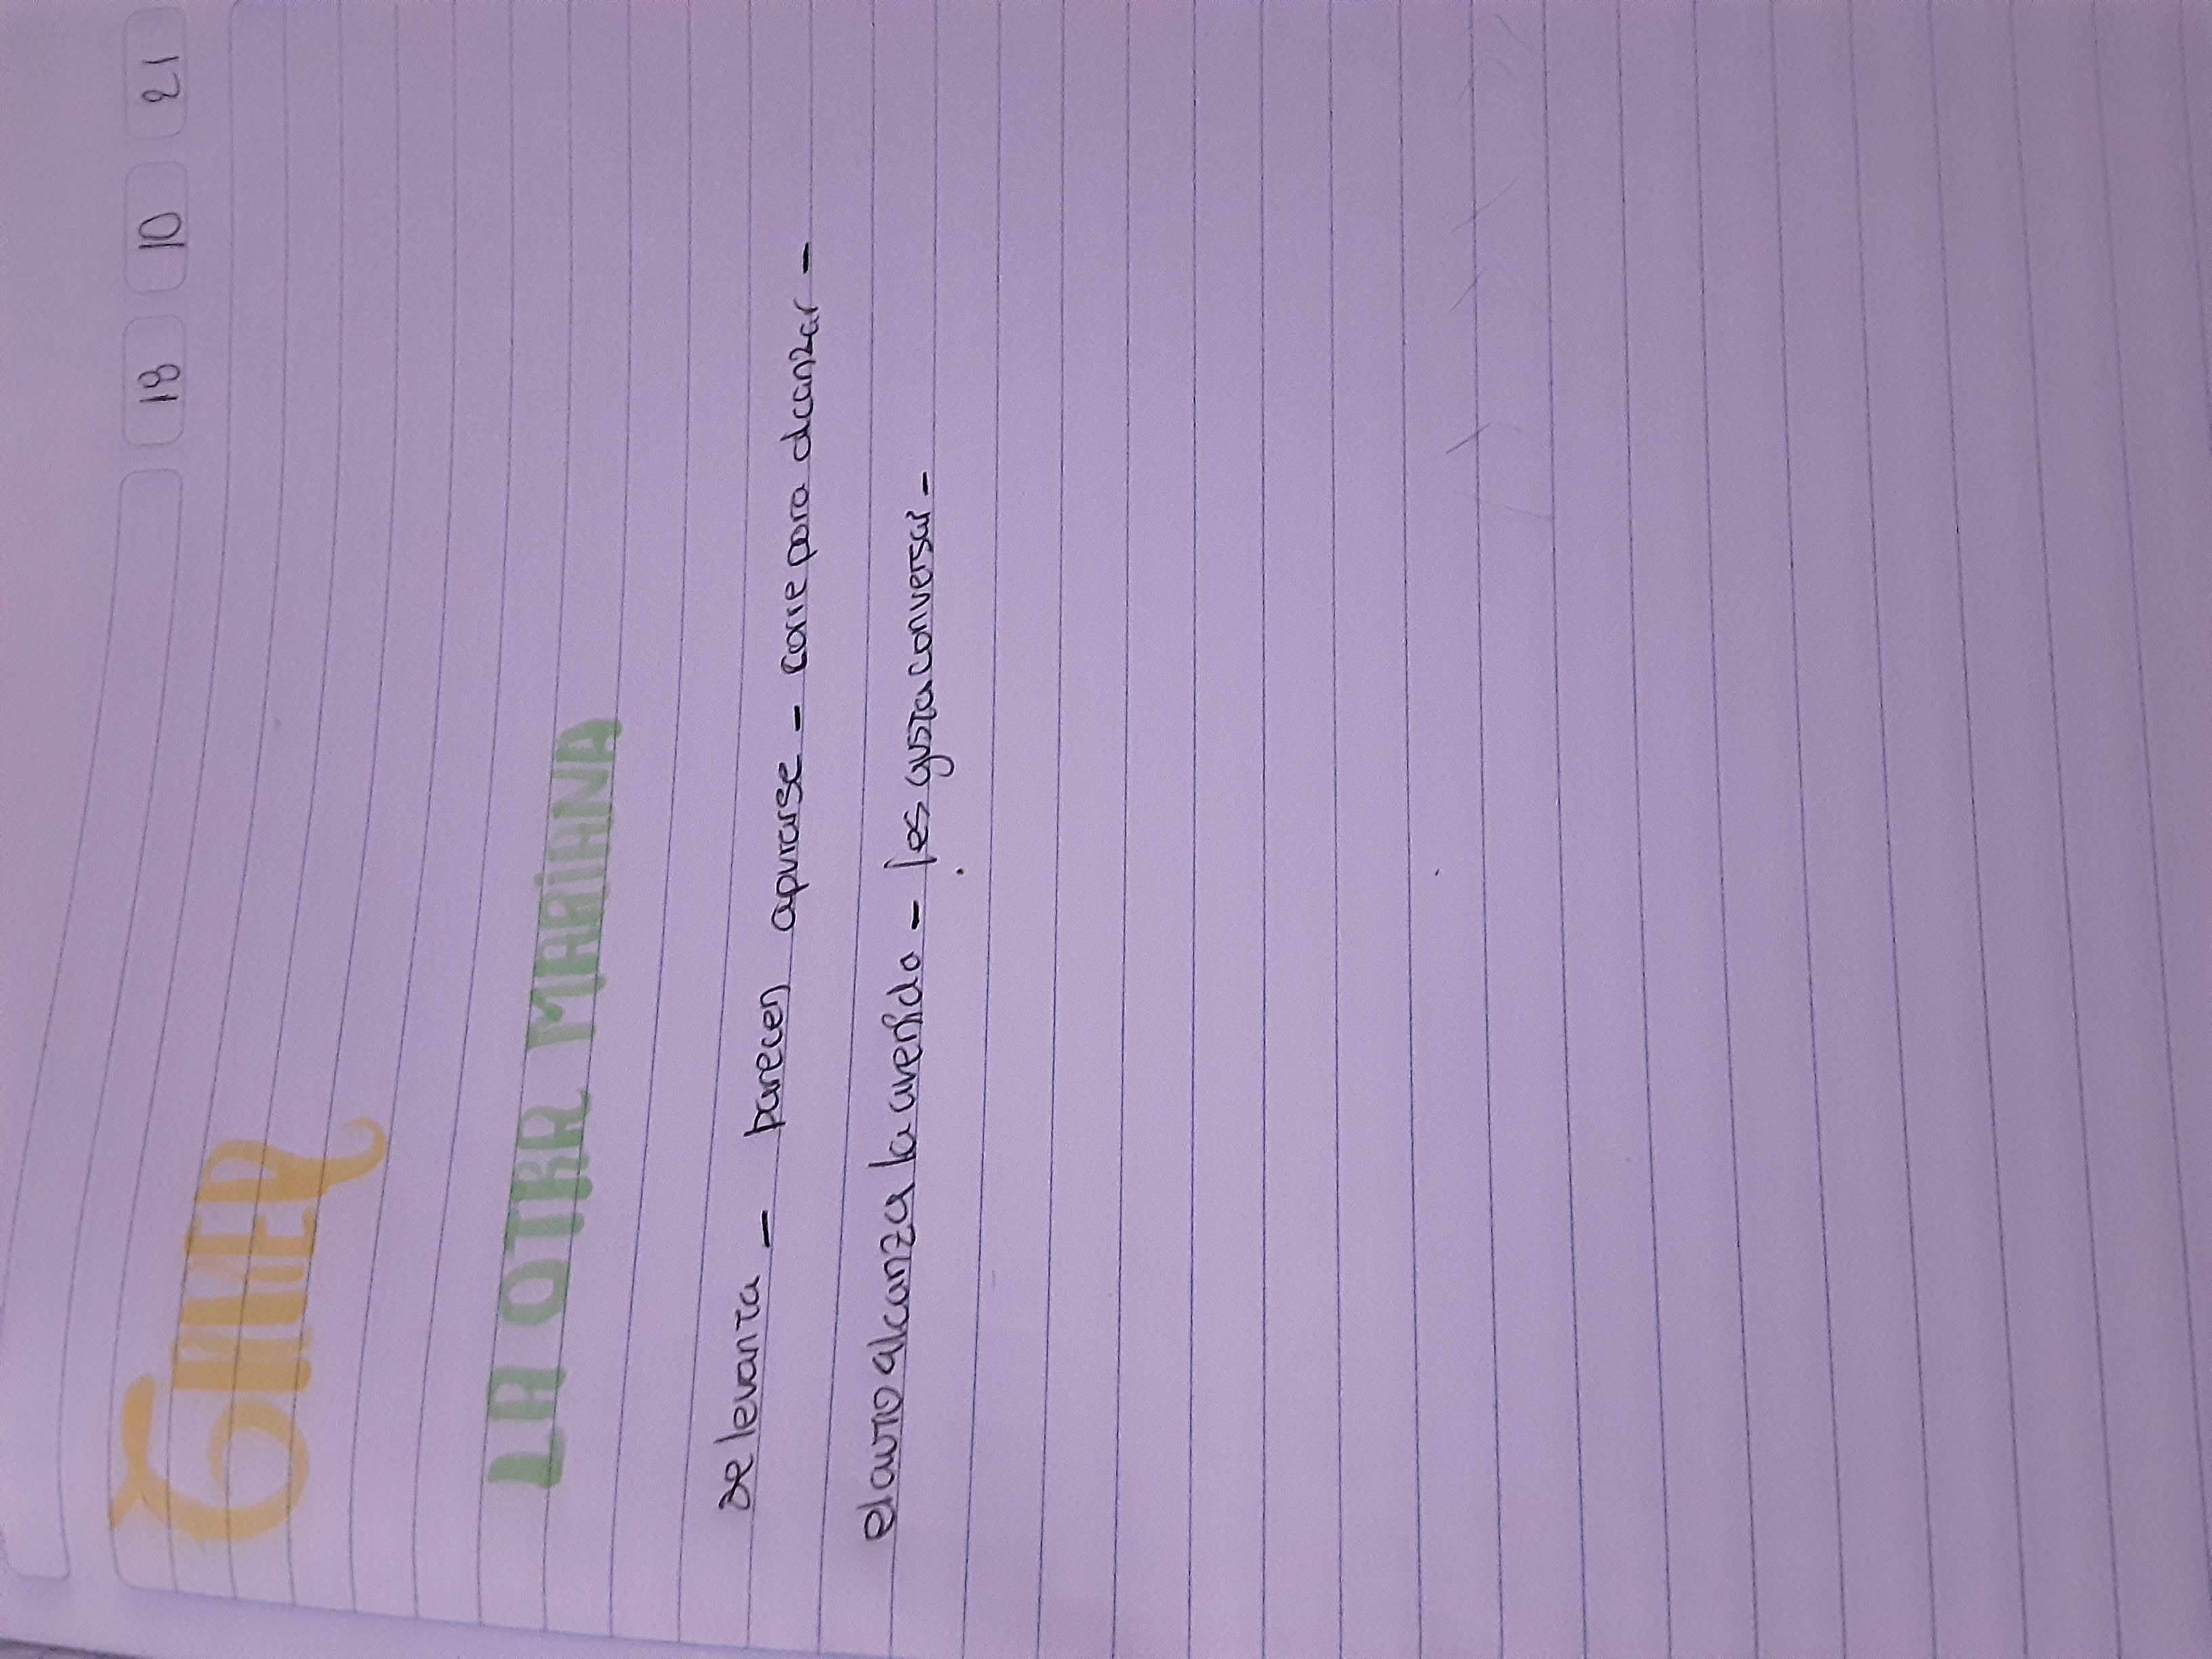 18 10 21
LA OTRA MARiANA
se levanta - parecen apurarse - corre para alcanzar -
el auto alcanza la avenida - les gusta conversar -